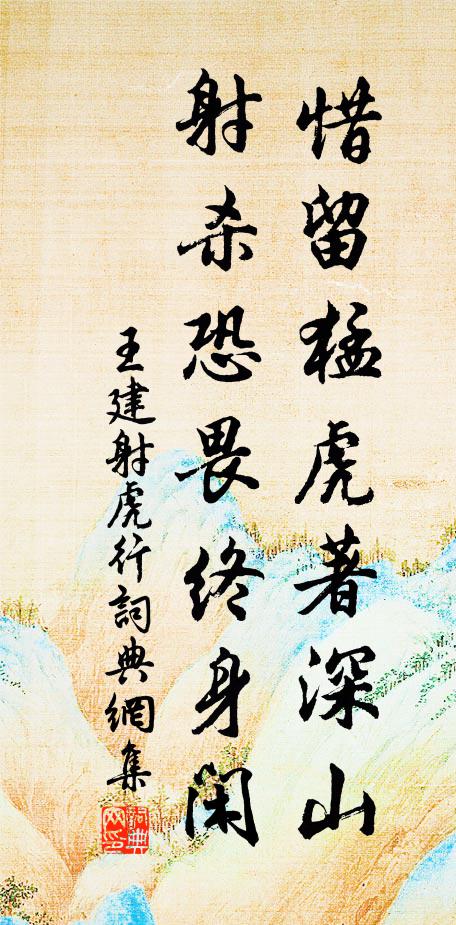 惜留猛虎著深山
射杀恐畏终身闲
王建射虎行詞典網集
詞典
网印